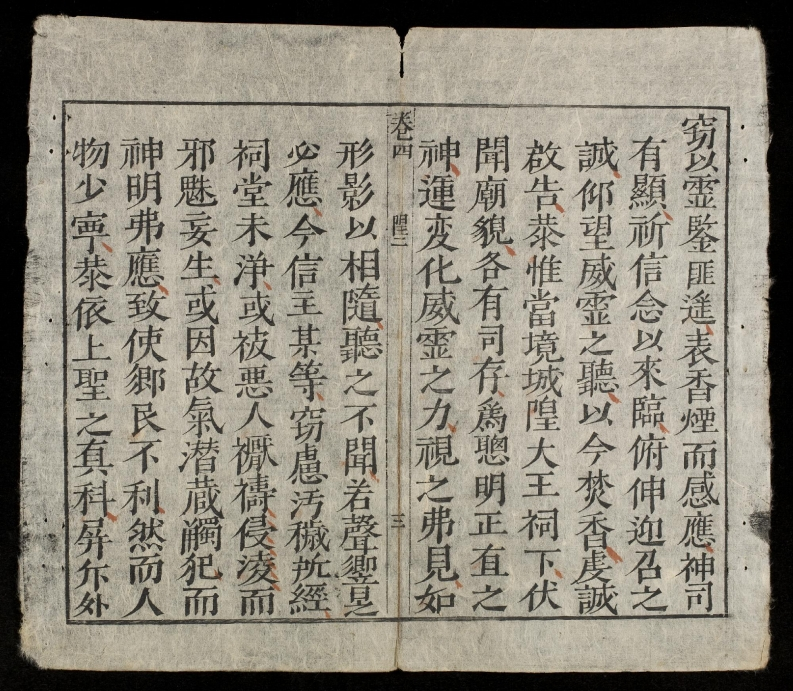 窃以霊鑒匪遥表香煙而感應神司
有顯祈信念以來臨俯伸迎召之
誠仰望威霊之聽以今焚香虔誠
啟告恭惟當境城隍大王祠下伏
聞廟貌各有司存爲聰明正直之
神運変化威霊之力視之弗見如
卷四
隍二
三
形影以相隨聽之不聞若聲響之
必應今信王某等窃慮汚穢所經
祠堂未浄或被悪人禳禱侵淩而
邪魅妄生或因故氣潜藏觸犯而
神明弗應致使鄉民不利然而人
物少寧恭依上聖之真科屏斥外